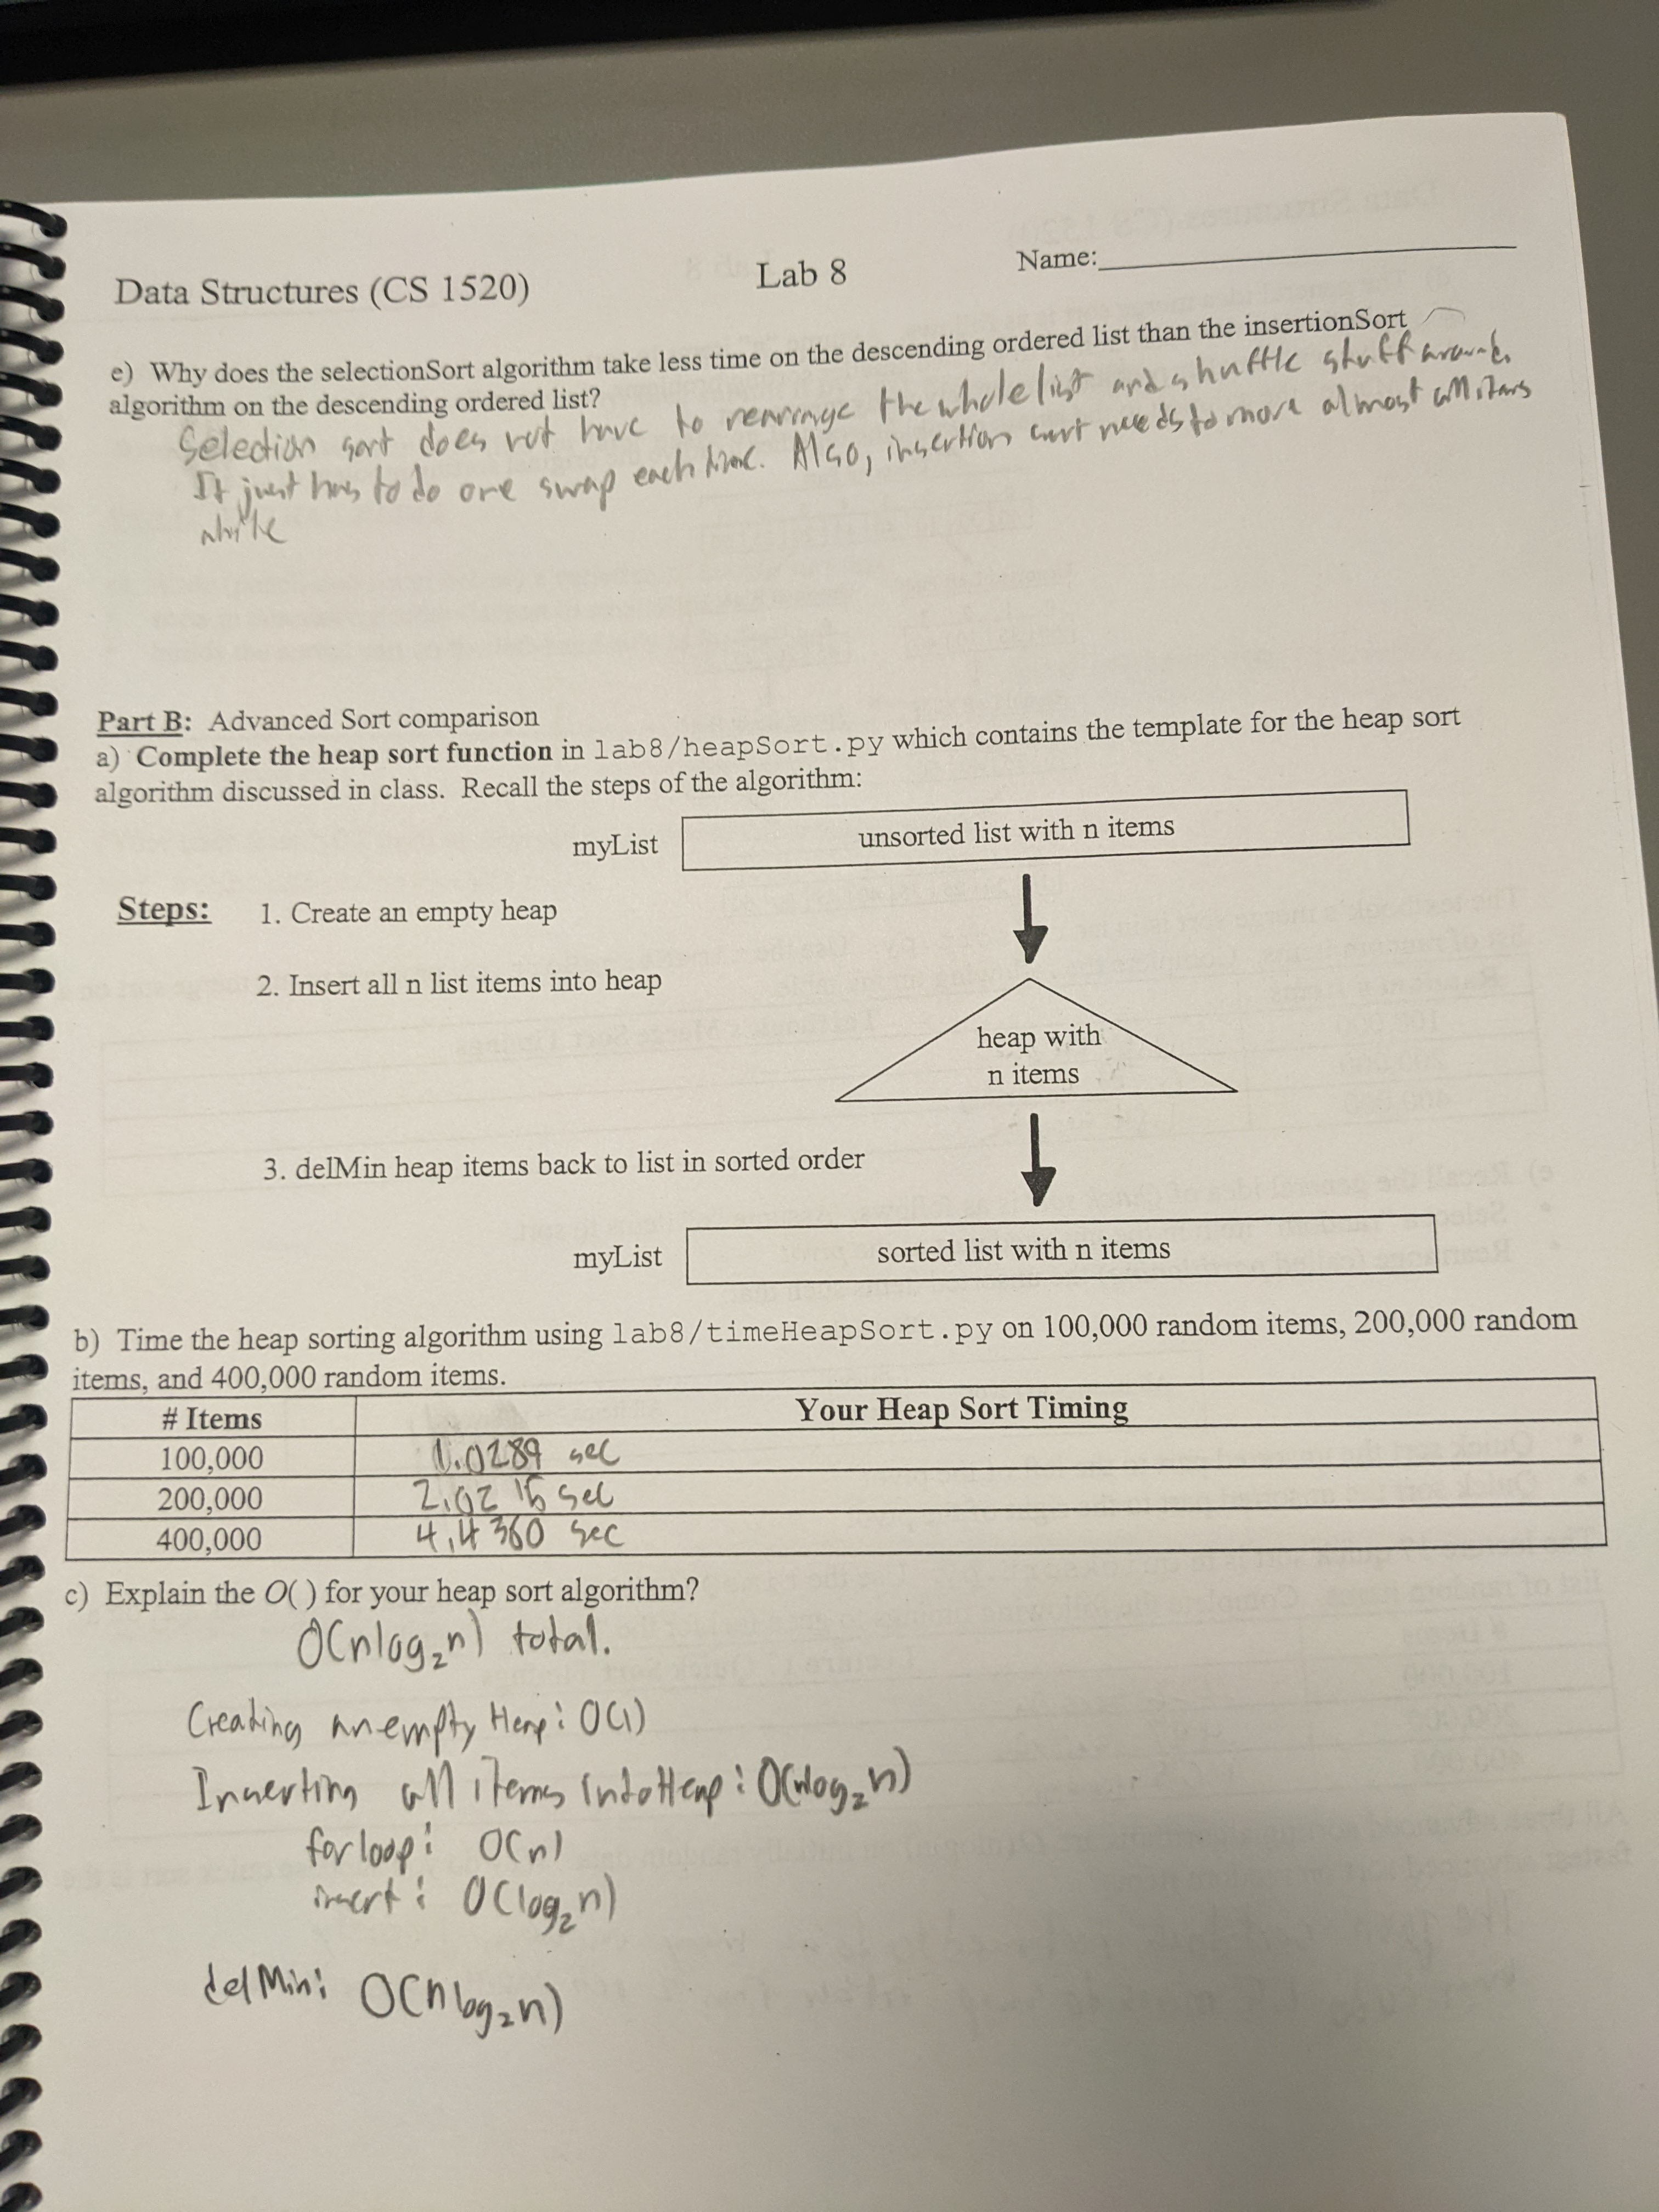 Data Structures (CS 1520)    Lab 8    Name:
e) Why does the selectionSort algorithm take less time on the descending ordered list than the insertionSort
algorithm on the descending ordered list?
Selection sort does not have to rearrange the whole list and shuffle stuff around.
It just has to do one swap each time. Also, insertion sort needs to move almost all items
while
Part B: Advanced Sort comparison
a) Complete the heap sort function in lab8/heapSort.py which contains the template for the heap sort
algorithm discussed in class. Recall the steps of the algorithm:
myList    unsorted list with n items
Steps:    1. Create an empty heap
2. Insert all n list items into heap
heap with
n items
3. delMin heap items back to list in sorted order
myList    sorted list with n items
b) Time the heap sorting algorithm using lab8/timeHeapSort.py on 100,000 random items, 200,000 random
items, and 400,000 random items.
# Items    Your Heap Sort Timing
100,000    1.0289 sec
200,000    2.0215 sec
400,000    4.4360 sec
c) Explain the O( ) for your heap sort algorithm?
O(nlog₂n) total.
Creating an empty Heap: O(1)
Inserting all items into Heap: O(nlog₂n)
for loop: O(n)
insert: O(log₂n)
delMin: O(nlog₂n)